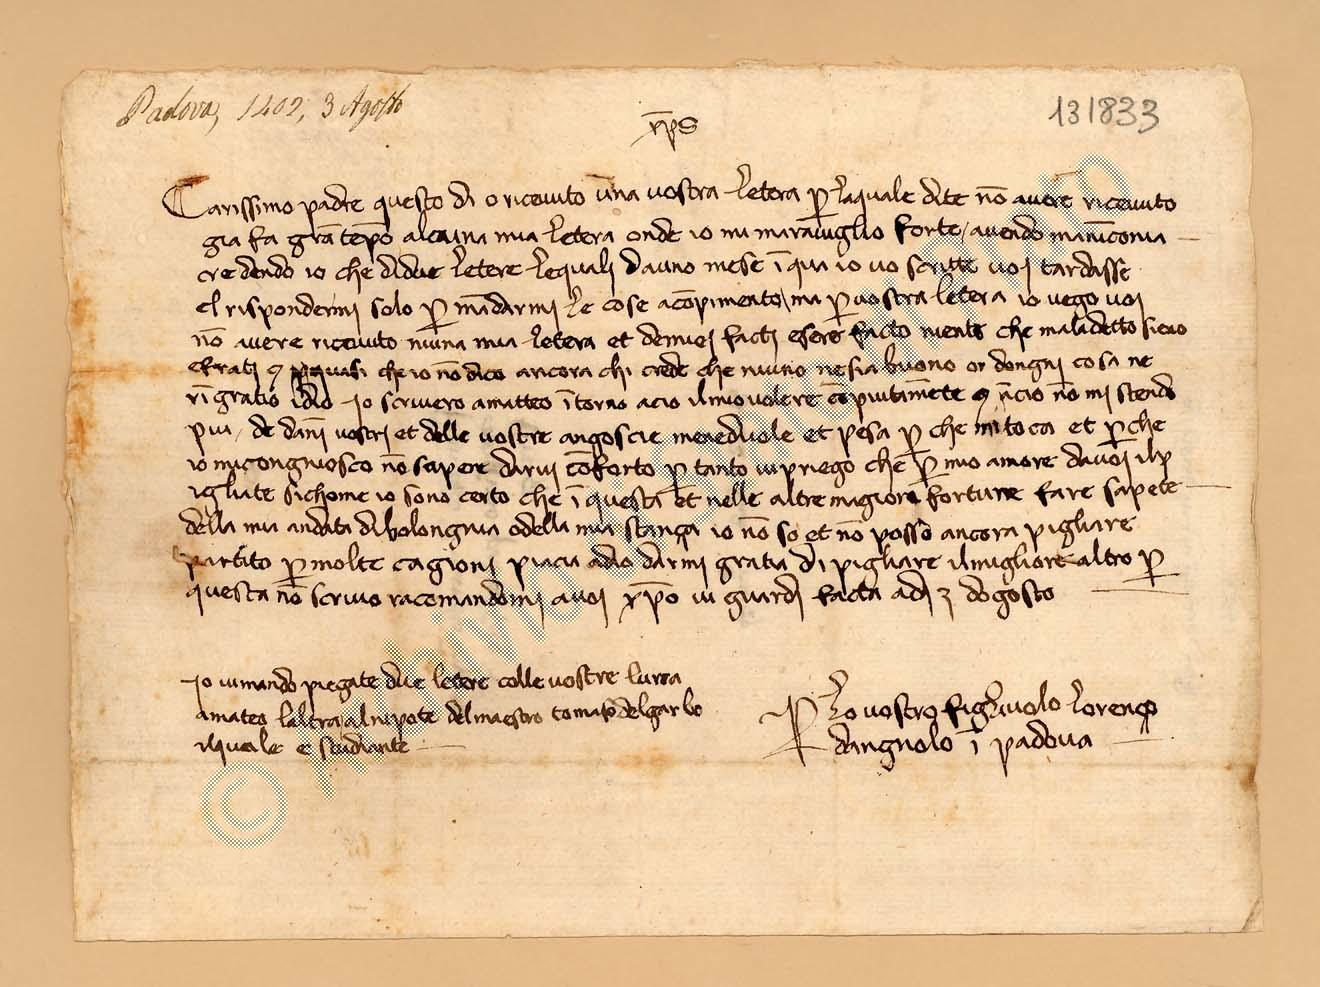 Padova, 1402, 3 Agosto
131833
xp̄s
Carissimo padre questo di o ricevuto una vostra letera p̱ laquale dite nō avere ricevuto
gia fa grā tēpo alcuna mia letera onde io mi maraviglio forte / avendo maniconia
credendo io che di due letere lequali dauno mese ī qua io vo scritte voi tardasse
el rispondermi solo p̱ mādarmi le cose acōpimento / ma p̱ vostra letera io vego voi
nō avere ricevuto niuna mia letera et demiei facti esere facto niente che maladetto sieno
efrati quasi che io nō dico ancora chi crede che niuno nesia buono or dongni cosa ne
rīgratio idio Io scrivero amatteo ītorno acio ilmio volere cōpiutamēte nō mi stendo
piu / de dāni vostri et delle vostre angoscie menedvole et pesa p̱ che mi toca et p̱che
io micongnosco nō sapere darvi cōforto p̱ tanto vi priego che p̱ mio amore davoi ilp
igliate sichome io sono certo che ī questa et nelle altre magiori fortune fare sapete
della mia andata di bolongnia odella mia stança io nō so et nō posso ancora pigliare
partito p̱ molte cagioni piacia adio darmi gratia di pigliare ilmigliore altro p̱
questa nō scrivo racomandomi avoi xp̄o vi guardi facta adi 3 dogosto
Io vimando piegate due letere colle vostre luna
amateo laltra alnipote delmaestro tomaso delgarbo
ilquale e studiante
P̱ lo vostro figluolo lorenço
dangnolo ī padova
© Archivio